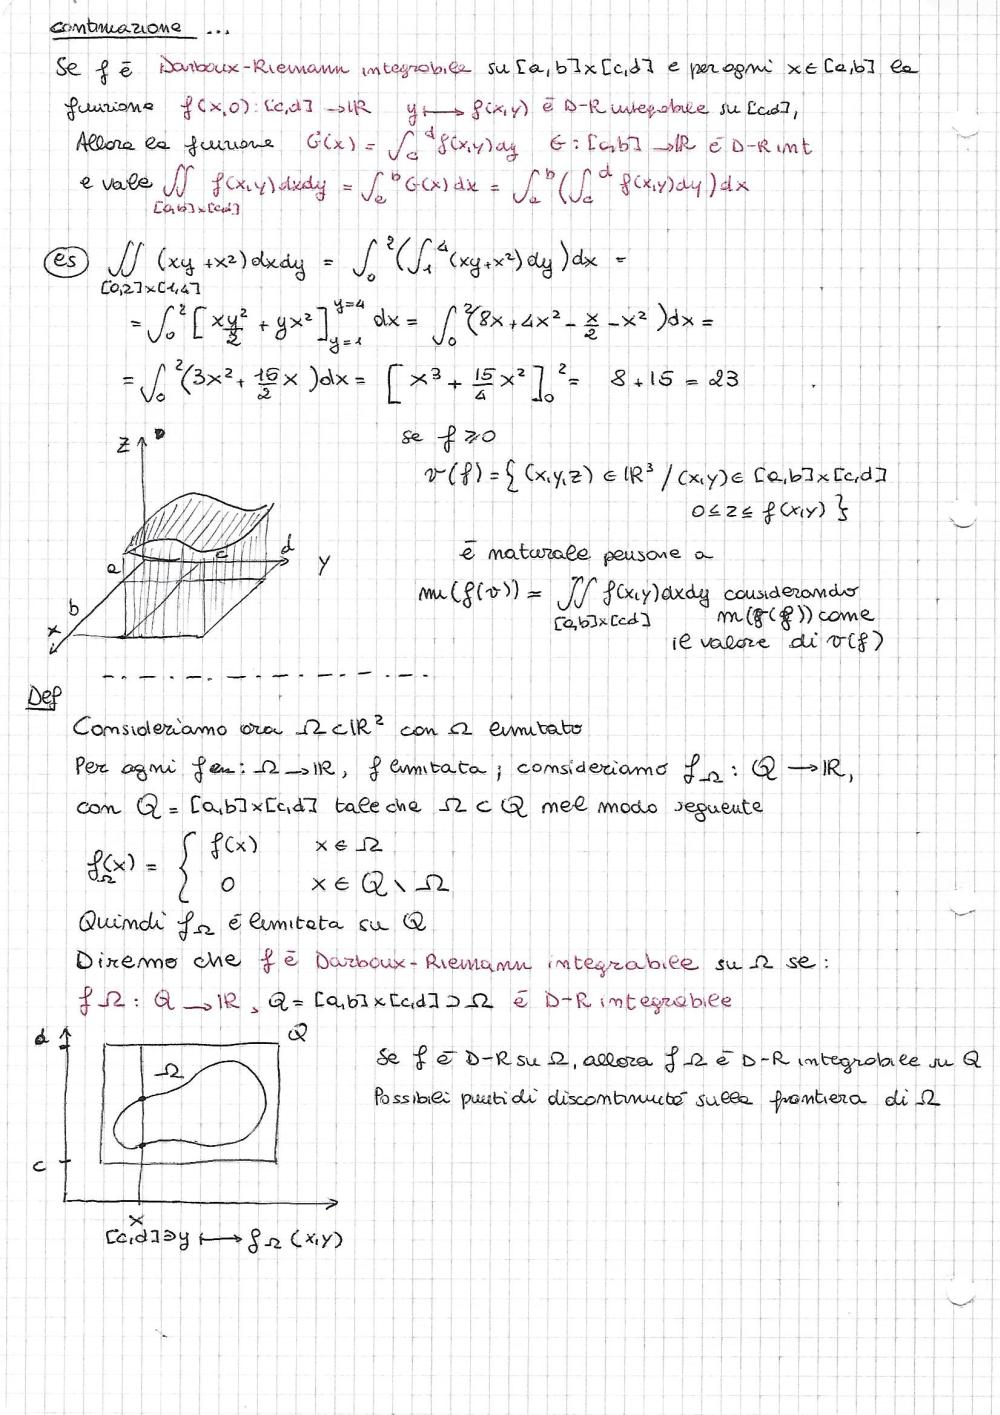 continuazione ...
Se f è Darboux-Riemann integrabile su [a,b]x[c,d] e per ogni x∈[a,b] la
funzione f(x,0): [c,d] →IR y ↦ f(x,y) è D-R integrabile su [c,d],
Allora la funzione G(x) = ∫_c^d f(x,y)dy G: [a,b] →IR è D-R int
e vale ∬ f(x,y)dxdy = ∫_a^b G(x)dx = ∫_a^b (∫_c^d f(x,y)dy)dx
[a,b]x[c,d]
es ∬ (xy+x²)dxdy = ∫_0^2 (∫_1^4 (xy+x²)dy)dx =
[0,2]x[1,4]
= ∫_0^2 [xy²/2 + yx²]_{y=1}^{y=4} dx = ∫_0^2 (8x+4x² - x/2 - x²)dx =
= ∫_0^2 (3x² + 15/2 x)dx = [x³ + 15/4 x²]_0^2 = 8+15 = 23
se f ⩾0
v(f) = { (x,y,z) ∈ IR³ / (x,y)∈ [a,b]x[c,d]
0≤z≤ f(x,y) }
z
a
c
d
y
b
x
è naturale pensare a
m(f(v)) = ∬ f(x,y)dxdy considerando
[a,b]x[cd] m(f(f)) come
il valore di v(f)
Def
Consideriamo ora Ω⊂IR² con Ω limitato
Per ogni f: Ω→IR, f limitata; consideriamo f_Ω: Q →IR,
con Q = [a,b]x[c,d] tale che Ω⊂Q nel modo seguente
f_Ω(x) = { f(x) x∈Ω
0 x∈ Q\Ω
Quindi f_Ω è limitata su Q
Diremo che f è Darboux-Riemann integrabile su Ω se:
f_Ω: Q →IR, Q= [a,b]x[c,d]⊃Ω è D-R integrabile
d
Q
Ω
c
x
Se f è D-R su Ω, allora f_Ω è D-R integrabile su Q
Possibili punti di discontinuità sulla frontiera di Ω
[c,d]∋y ↦ f_Ω(x,y)